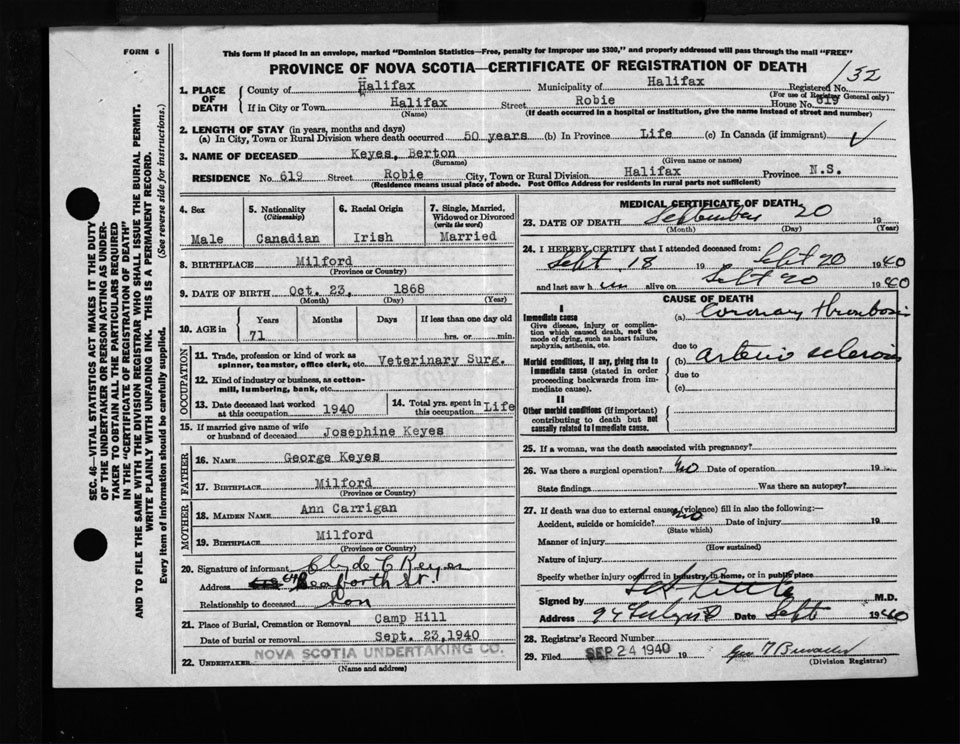 FORM 6
This form if placed in an envelope, marked "Dominion Statistics—Free, penalty for improper use $300," and properly addressed will pass through the mail "FREE"
PROVINCE OF NOVA SCOTIA—CERTIFICATE OF REGISTRATION OF DEATH
132
1. PLACE OF DEATH
County of Halifax Municipality of Halifax Registered No.
(For use of Registrar General only)
If in City or Town Halifax Street Robie House No. 619
(Name) (If death occurred in a hospital or institution, give the name instead of street and number)
2. LENGTH OF STAY (in years, months and days)
(a) In City, Town or Rural Division where death occurred 50 years (b) In Province Life (c) In Canada (if immigrant)
3. NAME OF DECEASED Keyes, Berton
(Surname) (Given name or names)
RESIDENCE No. 619 Street Robie City, Town or Rural Division Halifax Province N.S.
(Residence means usual place of abode. Post Office Address for residents in rural parts not sufficient)
4. Sex Male
5. Nationality (Citizenship) Canadian
6. Racial Origin Irish
7. Single, Married, Widowed or Divorced (write the word) Married
8. BIRTHPLACE Milford
(Province or Country)
9. DATE OF BIRTH Oct. 23, 1868
(Month) (Day) (Year)
10. AGE in Years Months Days If less than one day old
71 hrs. or min.
OCCUPATION
11. Trade, profession or kind of work as spinner, teamster, office clerk, etc. Veterinary Surg.
12. Kind of industry or business, as cotton-mill, lumbering, bank, etc.
13. Date deceased last worked at this occupation 1940
14. Total yrs. spent in this occupation Life
15. If married give name of wife or husband of deceased Josephine Keyes
FATHER
16. NAME George Keyes
17. BIRTHPLACE Milford
(Province or Country)
MOTHER
18. MAIDEN NAME Ann Carrigan
19. BIRTHPLACE Milford
(Province or Country)
20. Signature of informant Clyde C Keyes
Address Seaforth St.
Relationship to deceased Son
21. Place of Burial, Cremation or Removal Camp Hill
Date of burial or removal Sept. 23, 1940
22. UNDERTAKER NOVA SCOTIA UNDERTAKING CO.
(Name and address)
MEDICAL CERTIFICATE OF DEATH
23. DATE OF DEATH September 20 19
(Month) (Day) (Year)
24. I HEREBY CERTIFY that I attended deceased from:
Sept 18 19 Sept 20 1940
and last saw him alive on Sept 20 1940
CAUSE OF DEATH
I
Immediate cause
Give disease, injury or complication which caused death, not the mode of dying, such as heart failure, asphyxia, asthenia, etc.
(a) Coronary thrombosis
due to
Morbid conditions, if any, giving rise to immediate cause (stated in order proceeding backwards from immediate cause).
(b) arterio sclerosis
due to
(c)
II
Other morbid conditions (if important) contributing to death but not causally related to immediate cause.
25. If a woman, was the death associated with pregnancy?
26. Was there a surgical operation? no Date of operation 19
State findings Was there an autopsy?
27. If death was due to external causes (violence) fill in also the following:—
Accident, suicide or homicide? no Date of injury 19
(State which)
Manner of injury
(How sustained)
Nature of injury
Specify whether injury occurred in industry, in home, or in public place
Signed by Little M.D.
Address 94 Date Sept 1940
28. Registrar's Record Number
29. Filed SEP 24 1940 19
(Division Registrar)
SEC. 46—VITAL STATISTICS ACT MAKES IT THE DUTY
OF THE UNDERTAKER OR PERSON ACTING AS UNDER-
TAKER TO OBTAIN ALL THE PARTICULARS REQUIRED
IN THE "CERTIFICATE OF REGISTRATION OF DEATH"
AND TO FILE THE SAME WITH THE DIVISION REGISTRAR WHO SHALL ISSUE THE BURIAL PERMIT.
WRITE PLAINLY WITH UNFADING INK. THIS IS A PERMANENT RECORD.
Every item of Information should be carefully supplied. (See reverse side for instructions.)